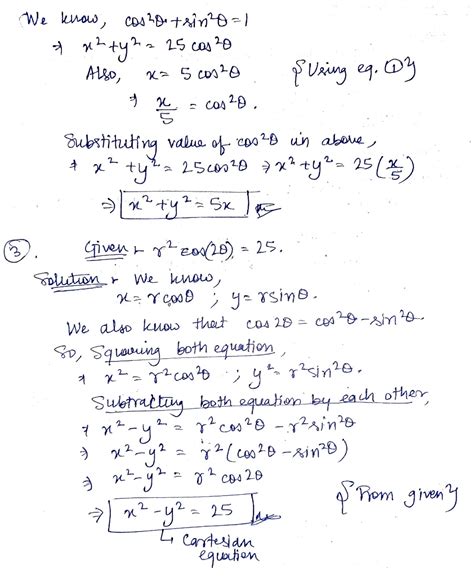 We know, cos²θ + sin²θ = 1
⇒ x² + y² = 25 cos²θ
Also, x = 5 cos²θ {Using eq. ①}
⇒ x/5 = cos²θ.
Substituting value of cos²θ in above,
⇒ x² + y² = 25cos²θ ⇒ x² + y² = 25 (x/5)
⇒ x² + y² = 5x
③. Given :- r² cos(2θ) = 25.
Solution :- We know,
x = r cosθ ; y = r sinθ.
We also know that cos 2θ = cos²θ - sin²θ.
So, Squaring both equation,
⇒ x² = r² cos²θ ; y² = r² sin²θ.
Subtracting both equation by each other,
⇒ x² - y² = r² cos²θ - r² sin²θ
⇒ x² - y² = r² (cos²θ - sin²θ)
⇒ x² - y² = r² cos2θ
⇒ x² - y² = 25 {From given}
↳ Cartesian
equation